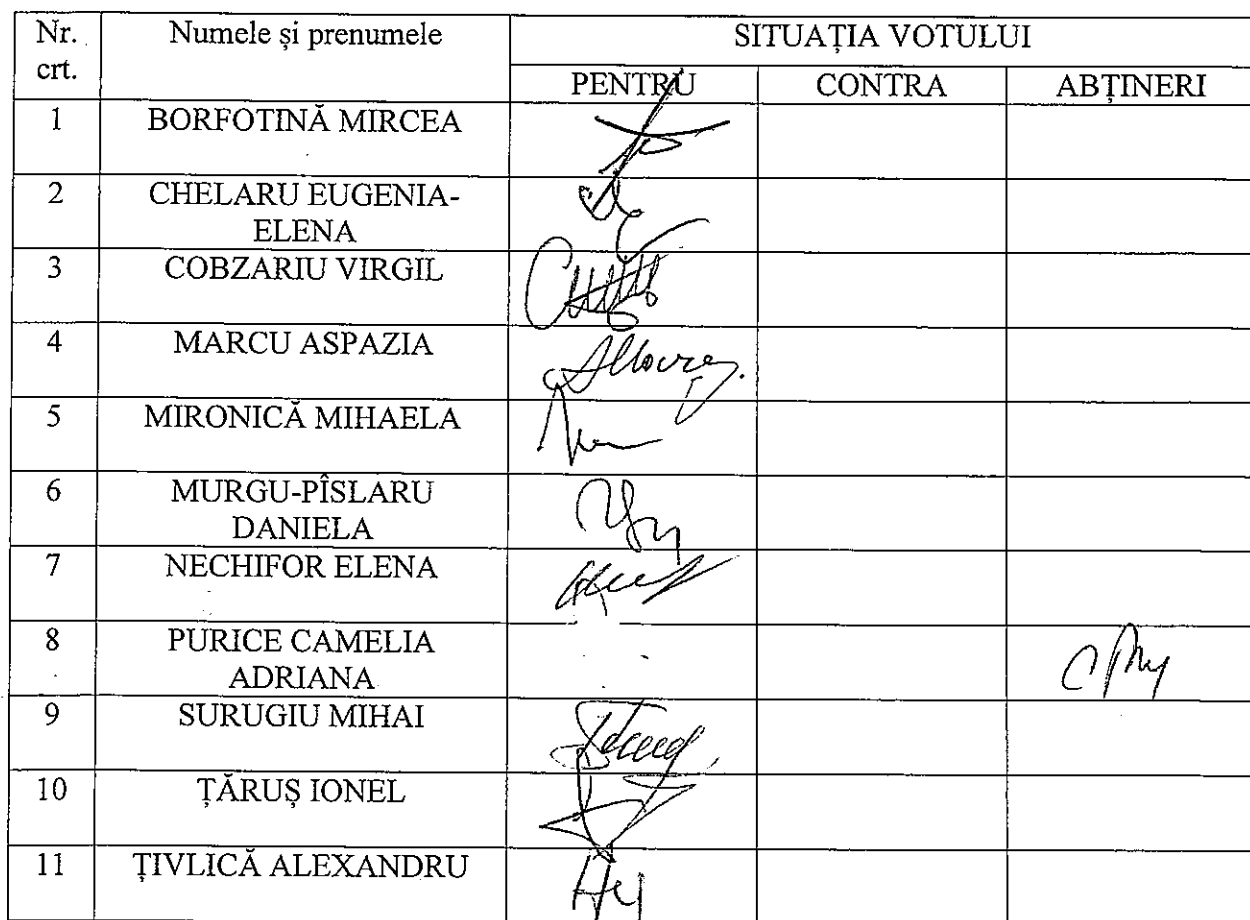 Nr. crt.
Numele și prenumele
SITUAȚIA VOTULUI
PENTRU
CONTRA
ABȚINERI
1 BORFOTINĂ MIRCEA
2 CHELARU EUGENIA-
ELENA
3 COBZARIU VIRGIL
4 MARCU ASPAZIA
5 MIRONICĂ MIHAELA
6 MURGU-PÎSLARU
DANIELA
7 NECHIFOR ELENA
8 PURICE CAMELIA
ADRIANA
9 SURUGIU MIHAI
10 ȚĂRUȘ IONEL
11 ȚIVLICĂ ALEXANDRU